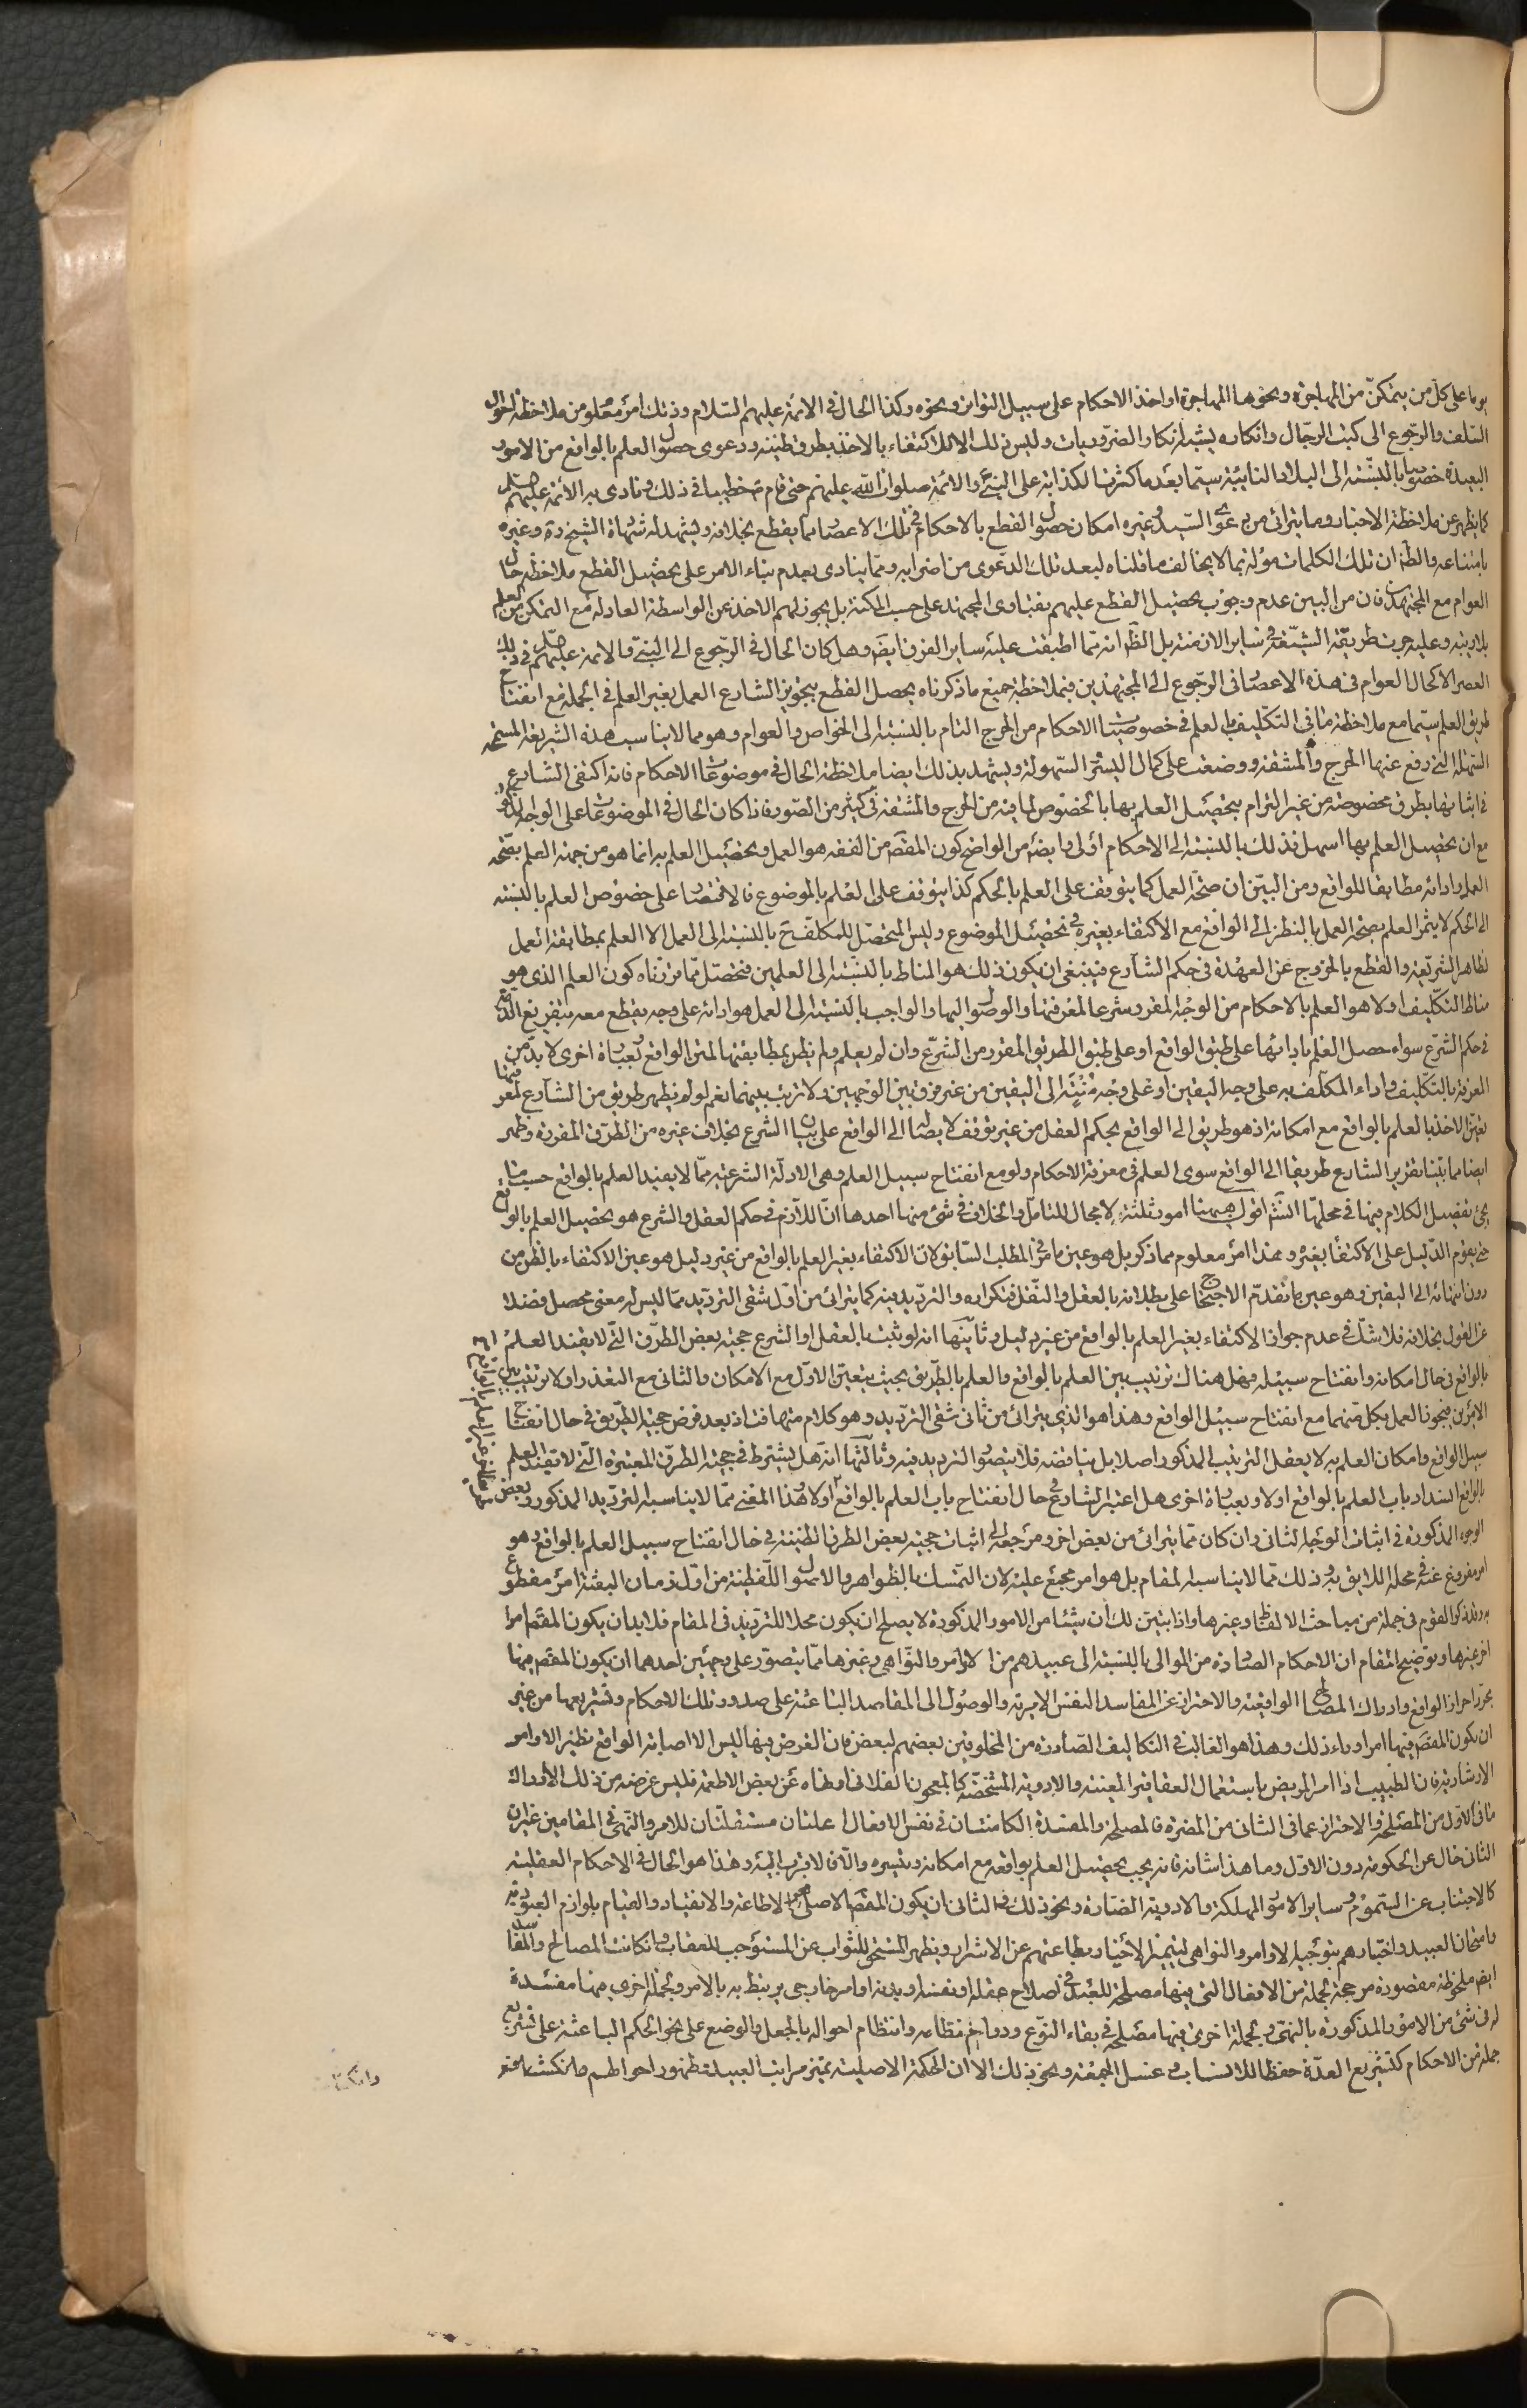 يوما على كل من يتمكن من المهاجرة ونحوها المهاجرة او اخذ الاحكام على سبيل التواتر ونحوه وكذا الحال في الائمة عليهم السلام وذلك امر معلوم من ملاحظة احوال
السلف والرجوع الى كتب الرجال وانكاره يشبه انكار الضروريات وليس ذلك الا للاكتفاء بالاخذ بطرق ظنية ودعوى حصول العلم بالواقع من الامور
البعيدة خصوصا بالنسبة الى البلاد النائية سيما بعد ما كثرت الكذابة على النبي والائمة صلوات الله عليهم حتى قام خطيبا في ذلك ونادى به الائمة عليهم
كما يظهر من ملاحظة الاخبار وما يترائى من دعوى السيد وغيره امكان حصول القطع بالاحكام في تلك الاعصار مما يقطع بخلافه ويشهد له شهادة الشيخ ره وغيره
بامتناعه والظ ان تلك الكلمات مؤلة بما لا يخالف ما قلناه لبعد تلك الدعوى من اضرابه ومما ينادى بعدم بناء الامر على تحصيل القطع ملاحظة حال
العوام مع المجتهدين فان من البين عدم وجوب تحصيل القطع عليهم بفتاوى المجتهد على حسب المكنة بل يجوز لهم الاخذ عن الواسطة العادلة مع التمكن من العلم
بلا ريبة وعليه جرت طريقة الشيعة في ساير الازمنة بل الظ انه مما اطبقت عليه ساير الفرق ايضا وهل كان الحال في الرجوع الى النبي والائمة عليهم في ذلك
العصر الا كحال العوام في هذه الاعصار في الرجوع الى المجتهدين فبملاحظة جميع ما ذكرناه يحصل القطع بتجويز الشارع العمل بغير العلم في الجملة مع انفتاح
طريق العلم سيما مع ملاحظة ما في التكليف بالعلم في خصوصيات الاحكام من الحرج التام بالنسبة الى الخواص والعوام وهو مما لا يناسب هذه الشريعة السمحة
السهلة التي رفع عنها الحرج والمشقة ووضعت على كمال اليسر والسهولة ويشهد بذلك ايضا ملاحظة الحال في موضوعات الاحكام فانه اكتفى الشارع
في اثباتها بطرق مخصوصة من غير الزام بتحصيل العلم بها بالخصوص لما فيه من الحرج والمشقة في كثير من الصور فاذا كان الحال في الموضوعات على الوجه المذكور
مع ان تحصيل العلم بها اسهل فذلك بالنسبة الى الاحكام اولى وايضا من الواضح كون المقصود من الفقه هو العمل وتحصيل العلم به انما هو من جهة العلم بصحة
العمل وادائه مطابقا للواقع ومن البين ان صحة العمل كما يتوقف على العلم بالحكم كذا يتوقف على العلم بالموضوع فالاقتصار على خصوص العلم بالنسبة
الى الحكم لا يثمر العلم بصحة العمل بالنظر الى الواقع مع الاكتفاء بغيره في تحصيل الموضوع وليس المتحصل للمكلف ح بالنسبة الى العمل الا العلم بمطابقة العمل
لظاهر الشريعة والقطع بالخروج عن العهدة في حكم الشارع فينبغي ان يكون ذلك هو المناط بالنسبة الى العلمين فتحصل مما قررناه كون العلم الذي هو
مناط التكليف اولا هو العلم بالاحكام من الوجه المقرر شرعا لمعرفتها والوصول اليها والواجب بالنسبة الى العمل هو ادائه على وجه يقطع معه بتفريغ الذمة
في حكم الشرع سواء حصل العلم بادائها على طبق الواقع او على طبق الطريق المقرر من الشرع وان لم يعلم ولم يظن بمطابقتها لمتن الواقع وبعبارة اخرى لا بد من
المعرفة بالتكليف واداء المكلف به على وجه اليقين او على وجه منته الى اليقين من غير فرق بين الوجهين ولا ترتيب بينهما نعم لو لم يظهر طريق من الشارع لمعرفتها
تعين الاخذ بالعلم بالواقع مع امكانه اذ هو طريق الى الواقع بحكم العقل من غير توقف لايصاله الى الواقع على بيان الشرع بخلاف غيره من الطرق المقررة وظهر
ايضا مما بينا تقرير الشارع طريقا الى الواقع سوى العلم في معرفة الاحكام ولو مع انفتاح سبيل العلم وهي الادلة الشرعية مما لا يفيد العلم بالواقع حسب ما
يجئ تفصيل الكلام فيها في محلها انش اقول هيهنا امور ثلثة لا مجال للتامل والخلاف في شئ منها احدها ان اللازم في حكم العقل والشرع هو تحصيل العلم بالواقع
حتى يقوم الدليل على الاكتفاء بغيره وهذا امر معلوم مما ذكر بل هو عين ما مر في المطلب السابق لان الاكتفاء بغير العلم بالواقع من غير دليل هو عين الاكتفاء بالظن من
دون انتهائه الى اليقين وهو عين ما تقدم الاحتجاج على بطلانه بالعقل والنقل فتكراره والترديد فيه كما يترائى من اول شقى الترديد مما ليس له معنى محصل فضلا
عن القول بخلافه فلا شك في عدم جواز الاكتفاء بغير العلم بالواقع من غير دليل وثانيها انه لو ثبت بالعقل او الشرع حجية بعض الطرق التي لا يفيد العلم
بالواقع في حال امكانه وانفتاح سبيله فهل هناك ترتيب بين العلم بالواقع والعلم بالطريق بحيث يتعين الاول مع الامكان والثاني مع التعذر او لا ترتيب بين
الامرين فيجوز العمل بكل منهما مع انفتاح سبيل الواقع وهذا هو الذي يترائى من ثاني شقى الترديد وهو كلام متهافت اذ بعد فرض حجية الطريق في حال انفتاح
سبيل الواقع وامكان العلم به لا يعقل الترتيب المذكور اصلا بل يناقضه فلا يتصور الترديد فيه وثالثها انه هل يشترط في حجية الطرق المعتبرة التي لا تفيد العلم
بالواقع انسداد باب العلم بالواقع اولا وبعبارة اخرى هل اعتبر الشارع في حال انفتاح باب العلم بالواقع اولا وهذا المعنى مما لا يناسبه الترديد المذكور وبعض
الوجوه المذكورة في اثبات الوجه الثاني وان كان مما يترائى من بعض اخر ومرجعه الى اثبات حجية بعض الطرق الظنية في حال انفتاح سبيل العلم بالواقع وهو
امر مفروغ عنه في محله اللايق به وذلك مما لا يناسبه المقام بل هو امر مجمع عليه لان التمسك بالظواهر والاصول اللفظية من اول زمان البعثة امر مقطوع
به وقد ذكر القوم في جملة من مباحث الالفاظ وغيرها واذا تبين لك ان شيئا من الامور المذكورة لا يصلح ان يكون محلا للترديد في المقام فلا بد ان يكون المقصود امرا
اخر غيرها وتوضيح المقام ان الاحكام الصادرة من الموالى بالنسبة الى عبيدهم من الاوامر والنواهي وغيرها مما يتصور على وجهين احدهما ان يكون المقصود منها
مجرد احراز الواقع وادراك المصالح الواقعية والاحتراز عن المفاسد النفس الامرية والوصول الى المقاصد الباعثة على صدور تلك الاحكام وتشريعها من غير
ان يكون المقصود فيها امرا وراء ذلك وهذا هو الغالب في التكاليف الصادرة من المخلوقين بعضهم لبعض فان الغرض فيها ليس الا اصابة الواقع نظير الاوامر
الارشادية فان الطبيب اذا امر المريض باستعمال العقاقير المعينة والادوية المشخصة كالمعجون الفلاني او نهاه عن بعض الاطعمة فليس غرضه من ذلك الا ادراك
ما في الاول من المصلحة والاحتراز عما في الثاني من المضرة فالمصلحة والمفسدة الكامنتان في نفس الافعال علتان مستقلتان للامر والنهي في المقامين غير ان
الثاني خال عن الحكومة دون الاول وما هذا شانه فانه يجب تحصيل العلم بواقعه مع امكانه وتيسره والا فالاقرب اليه وهذا هو الحال في الاحكام العقلية
كالاجتناب عن السموم وساير الامور المهلكة والادوية الضارة ونحو ذلك الثاني ان يكون المقصود الاصلى الاطاعة والانقياد والقيام بلوازم العبودية
وامتحان العبيد واختبارهم بتوجيه الاوامر والنواهي ليتميز الاخيار بطاعتهم عن الاشرار ويظهر المستحق للثواب عن المستوجب للعقاب وان كانت المصالح والمفاسد
ايضا ملحوظة مقصودة مرجحة لجملة من الافعال التي فيها مصلحة للعبد في اصلاح عقله او نفسه او بدنه او امر خارجي يرتبط به بالامر ولجملة اخرى منها مفسدة
له في شئ من الامور المذكورة بالنهى ولجملة اخرى فيها مصلحة في بقاء النوع ودوام نظامه وانتظام احواله بالجعل والوضع على نحو الحكم الباعثة على تشريع
جملة من الاحكام كتشريع العدة حفظا للانساب وغسل الجمعة ونحو ذلك الا ان الحكمة الاصلية تميز مراتب العبيد وظهور احوالهم وانكشاف